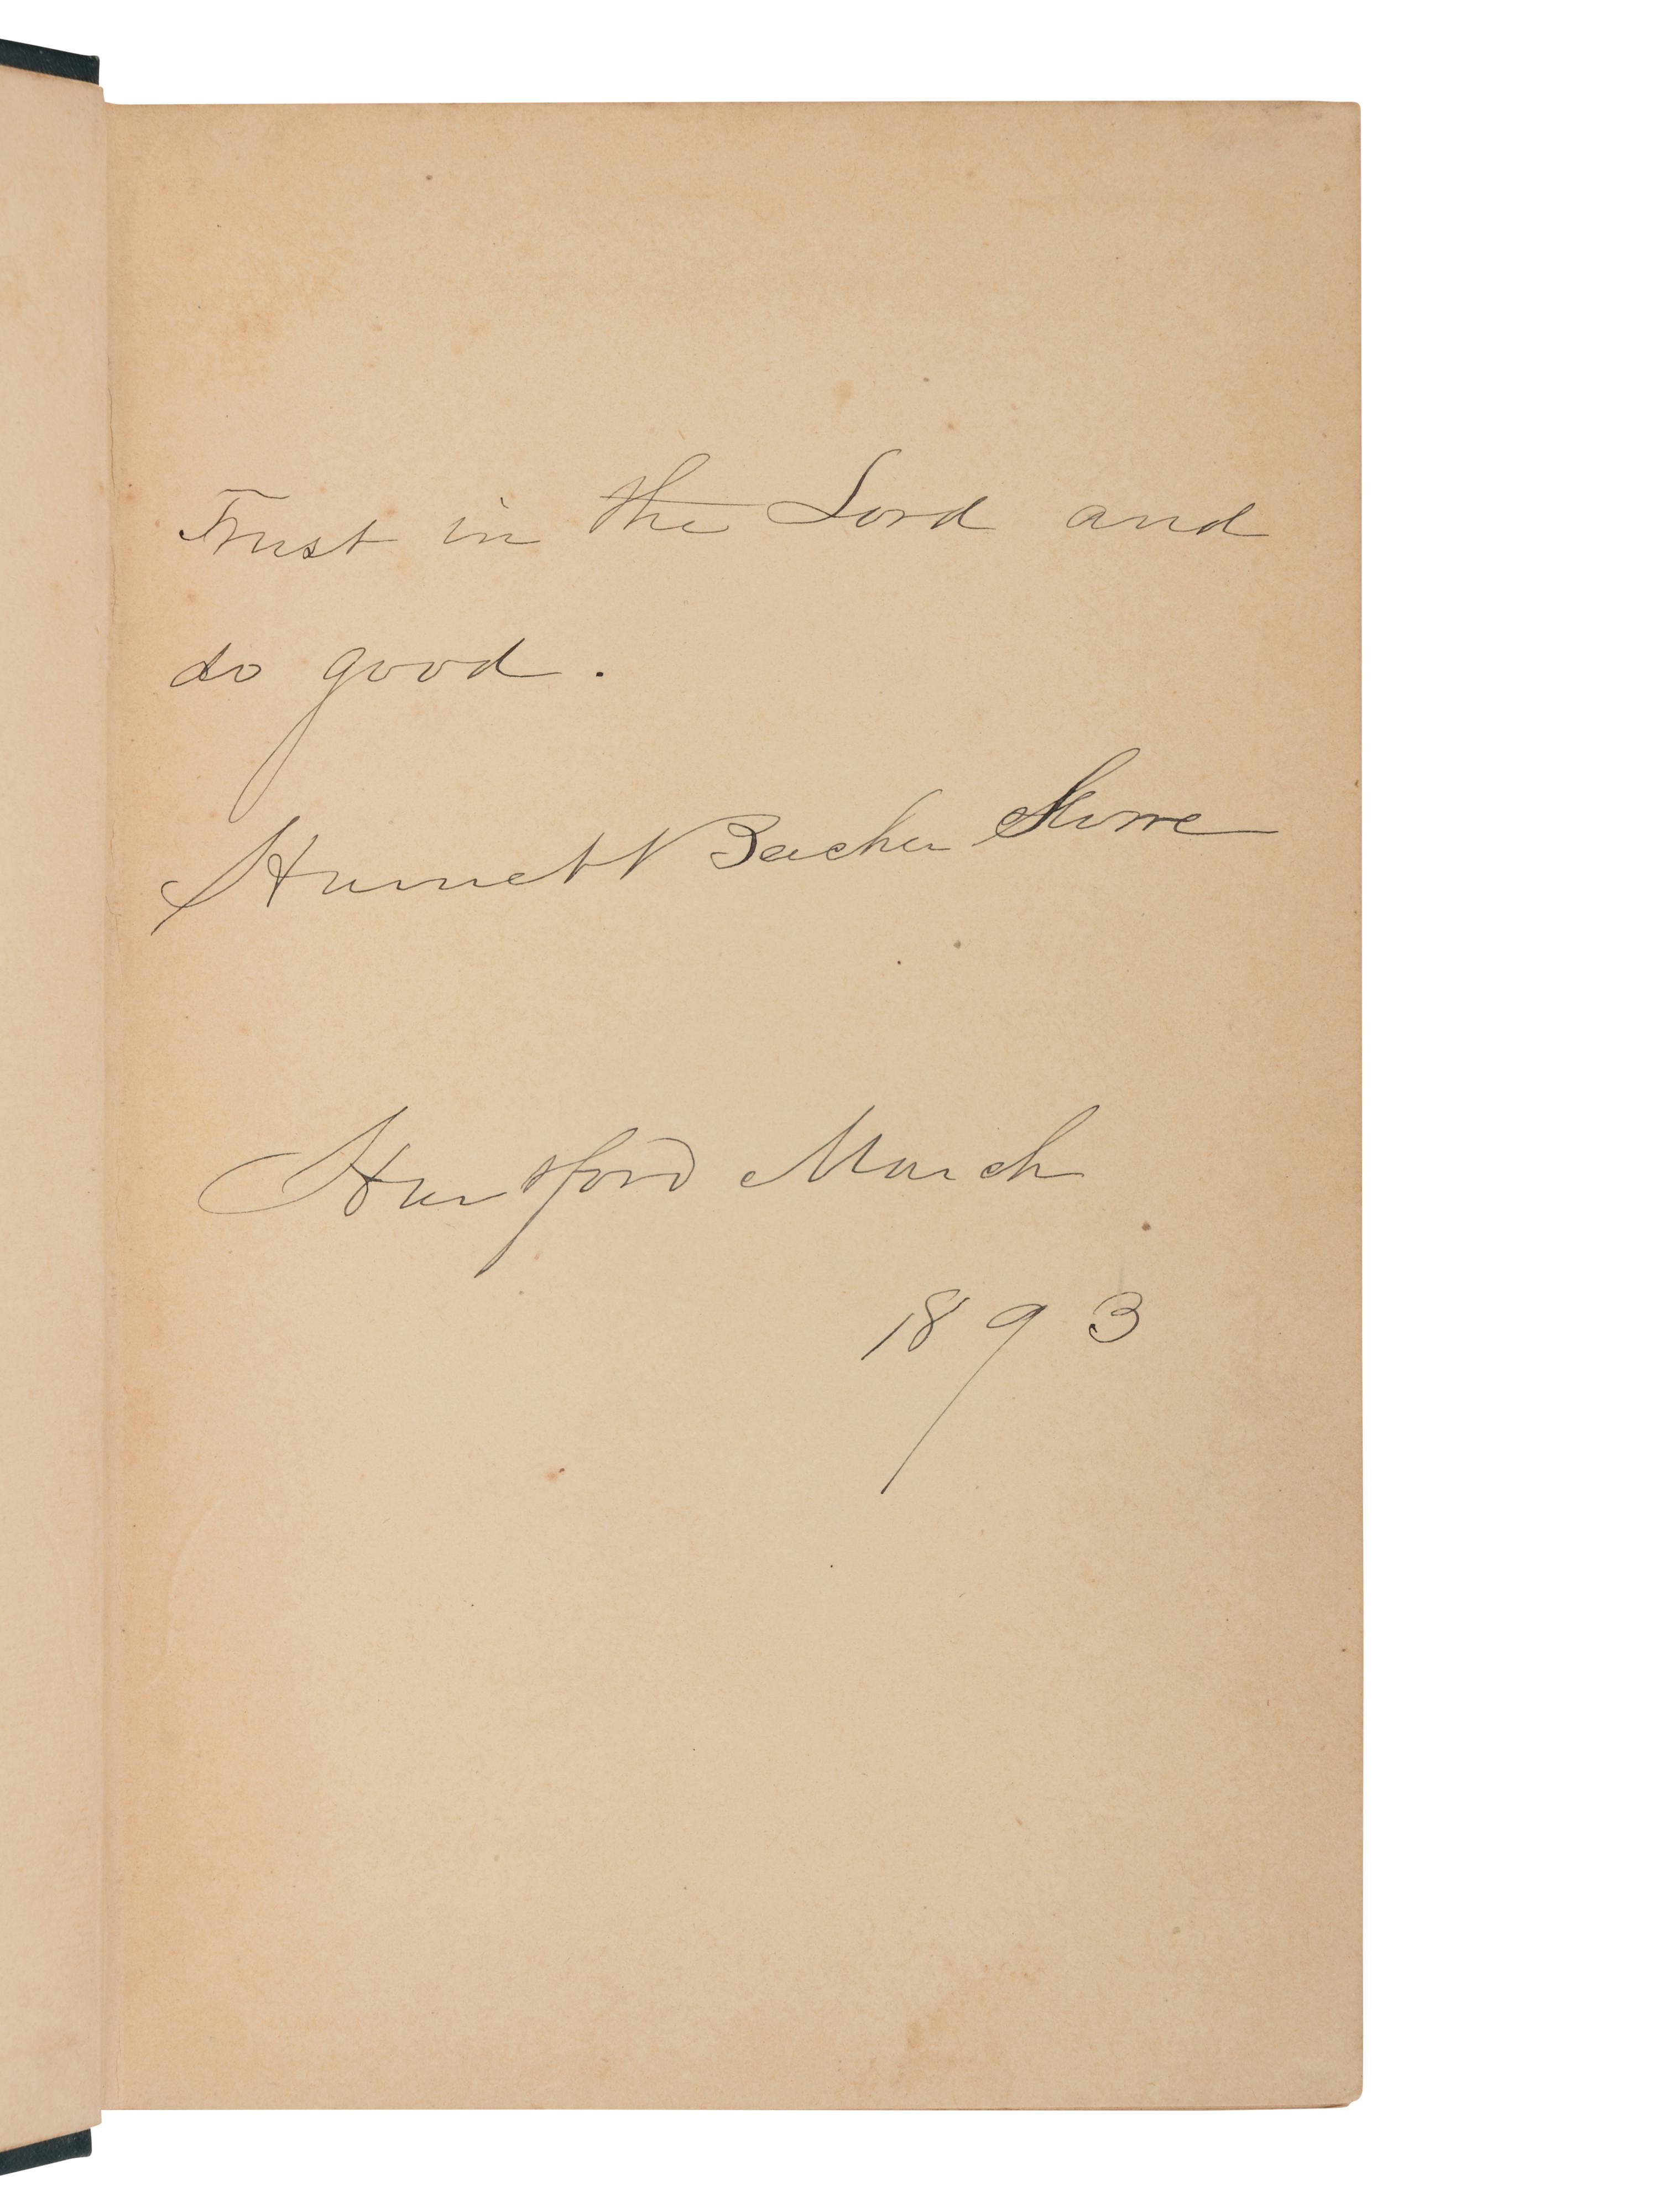 Trust in the Lord and
do good.
Harriet Beecher Stowe
Hartford March
1893